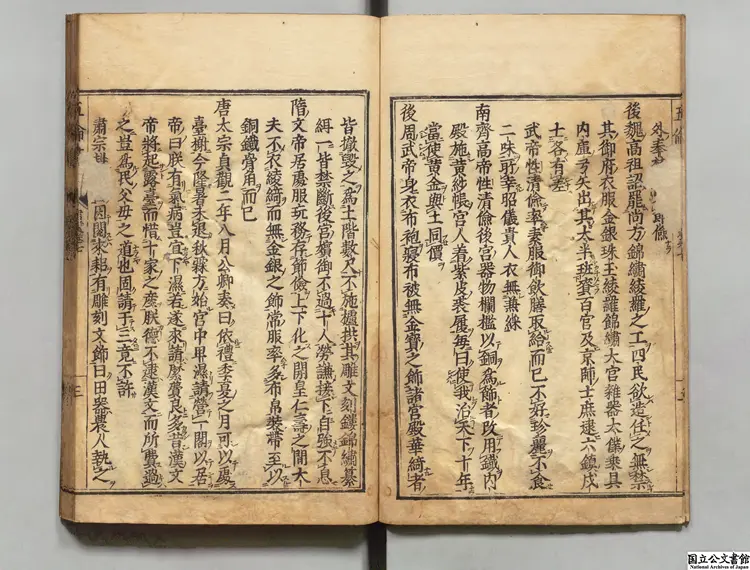 後魏高祖詔罷尚方錦繡綾羅之工四民欲造任之無禁
其御府衣服金銀珠玉綾羅錦繡大官雜器太僕乘具
内庫弓矢出其太半班賚百官及京師士庶逮六鎮戍
士各有差
武帝性清儉率素服御飲膳取給而已不好珍麗不食
二味所幸昭儀貴人衣無兼綵
南齊高帝性清儉後宮器物欄檻以銅爲飾者改用鐵内
殿施黄紗帳宮人着紫皮履毎曰使我治天下十年
當使黄金與土同價
後周武帝身衣布袍寢布被無金寶之飾諸宮殿華綺者
皆撤毀之爲土階數尺不施櫨栱其雕文刻鏤錦繡纂
組一皆禁斷後宮嬪御不過十人勞謙接下自強不息
隋文帝居處服玩務存節儉上下化之開皇仁壽之間大
夫不衣綾綺而無金銀之飾常服率多布帛裝帶至以
銅鐵骨角而已
唐太宗貞觀二年八月公卿奏曰依禮季夏之月可以處
臺榭今隆暑未退秋霖方始宮中卑濕請營一閣以居
帝曰朕有氣病豈宜下濕若遂來請糜費良多昔漢文
帝將起露臺而惜十家之産朕德不逮漢文而所費過
之豈爲民父母之道也固請于三竟不許
肅宗 因閲耒耜有雕刻文飾曰田器農人執之
三
国立公文書館
National Archives of Japan